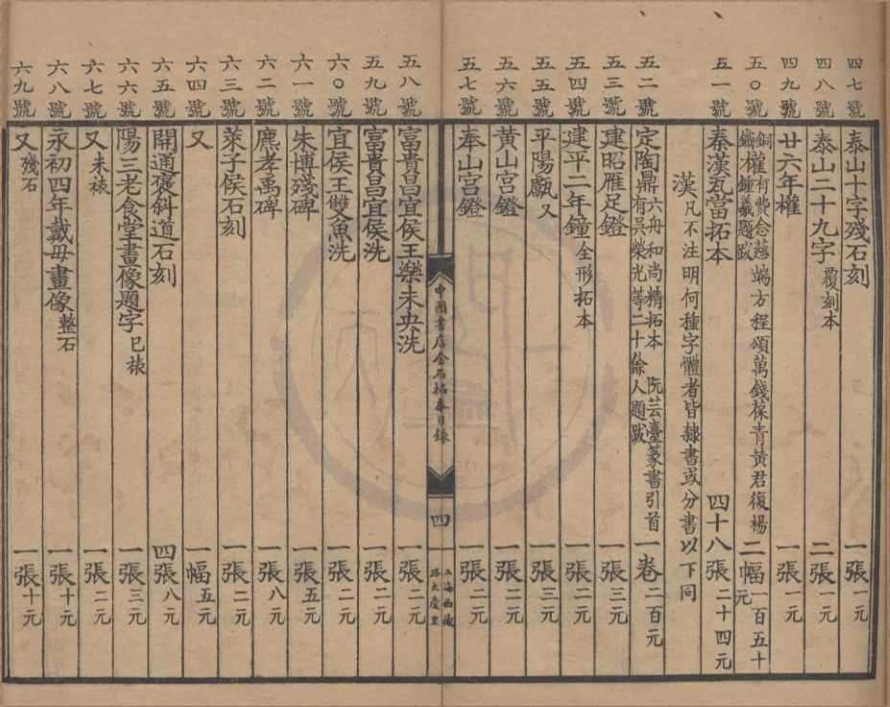 四七號 泰山十字殘石刻 一張 一元
四八號 泰山二十九字 覆刻本 二張 一元
四九號 廿六年權 一張 一元
五〇號 銅權有費念慈端方程頌萬錢葆青黃君復楊
鐵權鍾羲題跋 二幅 一百五十元
五一號 秦漢瓦當拓本 四十八張 二十四元
漢 凡不注明何種字體者皆隸書或分書以下同
五二號 定陶鼎 六舟和尚精拓本 阮芸臺篆書引首
有吳榮光等二十餘人題跋 一卷 二百元
五三號 建昭雁足鐙 一張 三元
五四號 建平二年鐘 全形拓本 一張 二元
五五號 平陽甗 又 一張 三元
五六號 黃山宮鐙 一張 二元
五七號 奉山宮鐙 一張 二元
中國書店金石拓本目錄
四
上海西藏
路大慶里
五八號 富貴昌宜侯王樂未央洗 一張 二元
五九號 富貴昌宜侯洗 一張 二元
六〇號 宜侯王雙魚洗 一張 二元
六一號 朱博殘碑 一張 五元
六二號 麃孝禹碑 一張 八元
六三號 萊子侯石刻 一張 二元
六四號 又 一幅 五元
六五號 開通褒斜道石刻 四張 八元
六六號 陽三老食堂畫像題字 已裱 一張 三元
六七號 又 未裱 一張 二元
六八號 永初四年戴毋畫像 整石 一張 十元
六九號 又 殘石 一張 十元